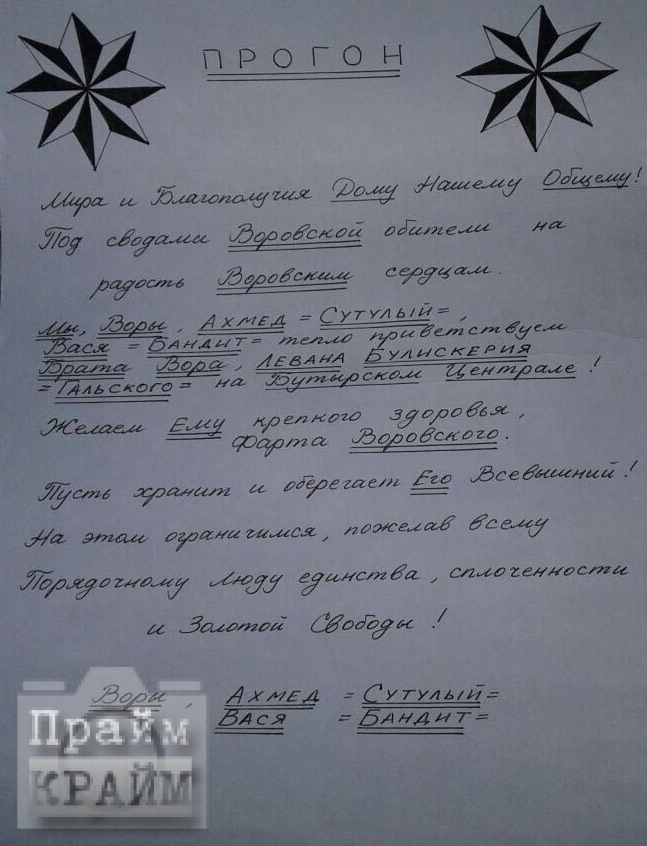 ПРОГОН
Мира и Благополучия Дому Нашему Общему!
Под сводами Воровской обители на
радость Воровским сердцам.
Мы, Воры, АХМЕД =СУТУЛЫЙ=,
Вася =БАНДИТ= тепло приветствуем
Брата Вора, ЛЕВАНА БУЛИСКЕРИЯ
=ГАЛЬСКОГО= на Бутырском Централе!
Желаем Ему крепкого здоровья,
Фарта Воровского.
Пусть хранит и оберегает Его Всевышний!
На этом ограничимся, пожелав всему
Порядочному Люду единства, сплоченности
и Золотой Свободы!
Воры, АХМЕД =СУТУЛЫЙ=
ВАСЯ =БАНДИТ=
Прайм
КРАЙМ